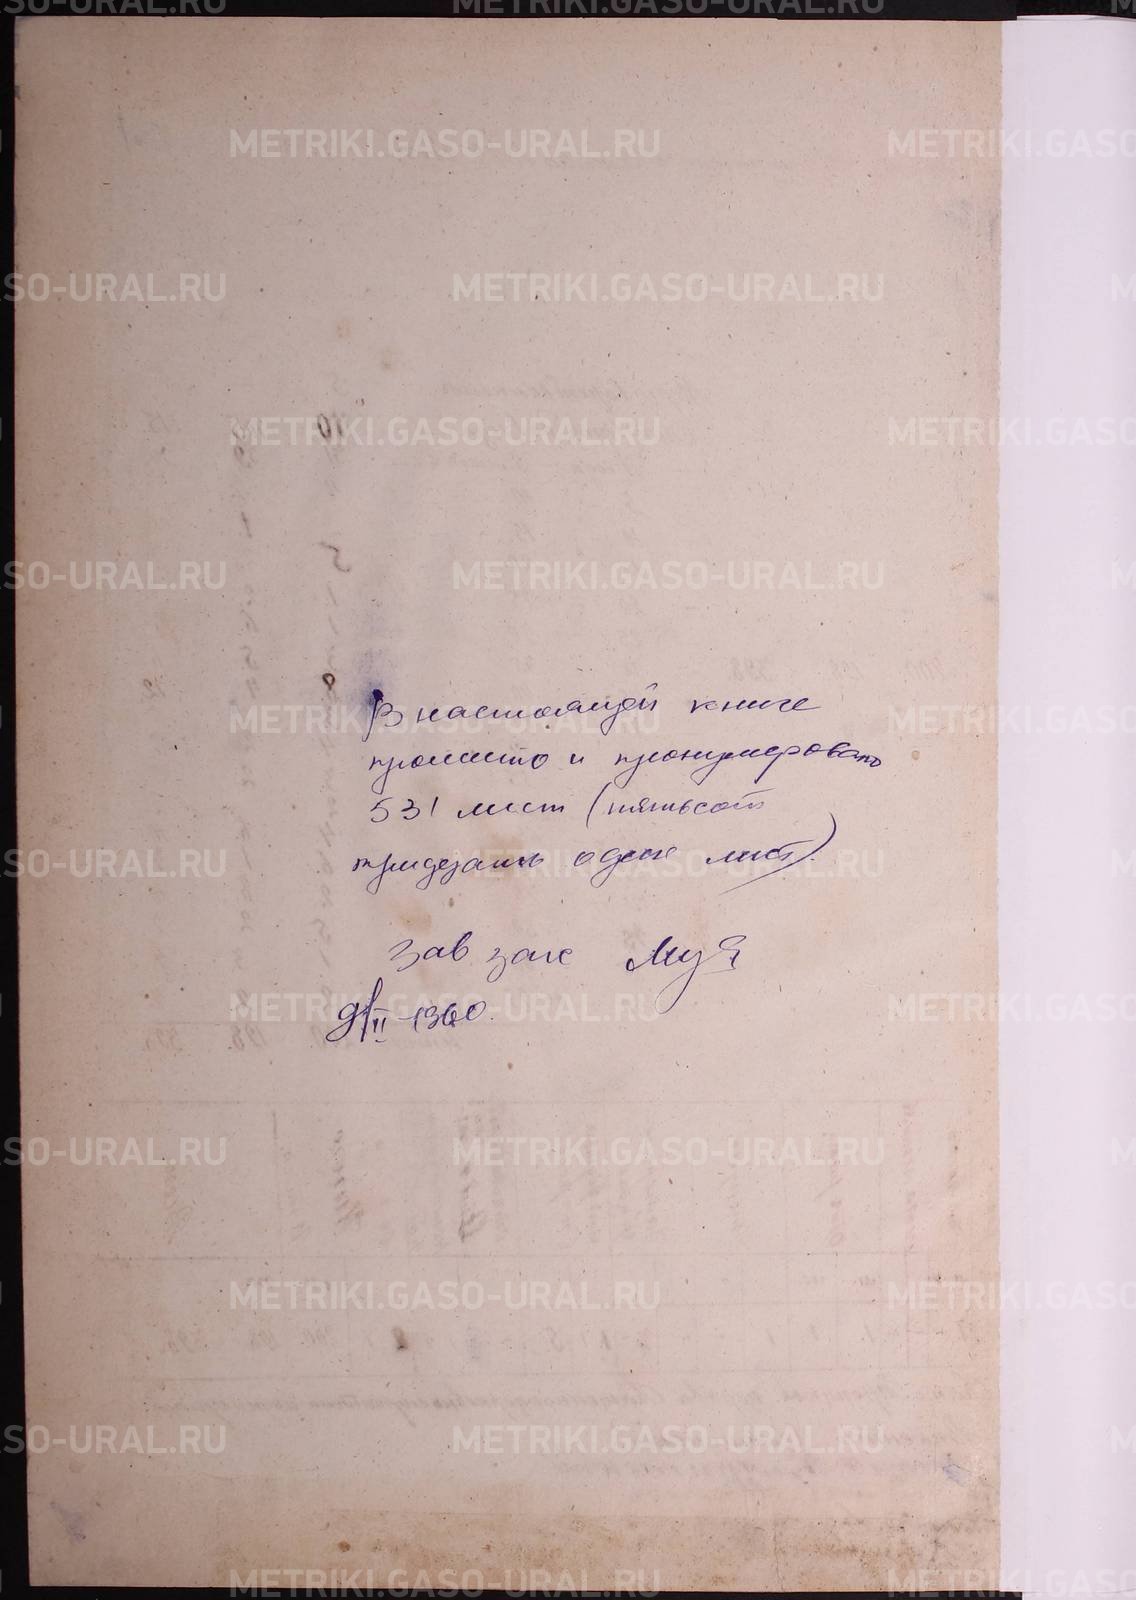 В настоящей книге
прошито и пронумеровано
531 лист (пятьсот
тридцать один лист).
Зав загс
9/II-1960.
METRIKI.GASO-URAL.RU